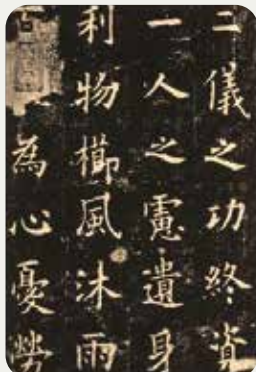 二儀之功終資
一人之慮遺身
利物櫛風沐雨
為心憂勞